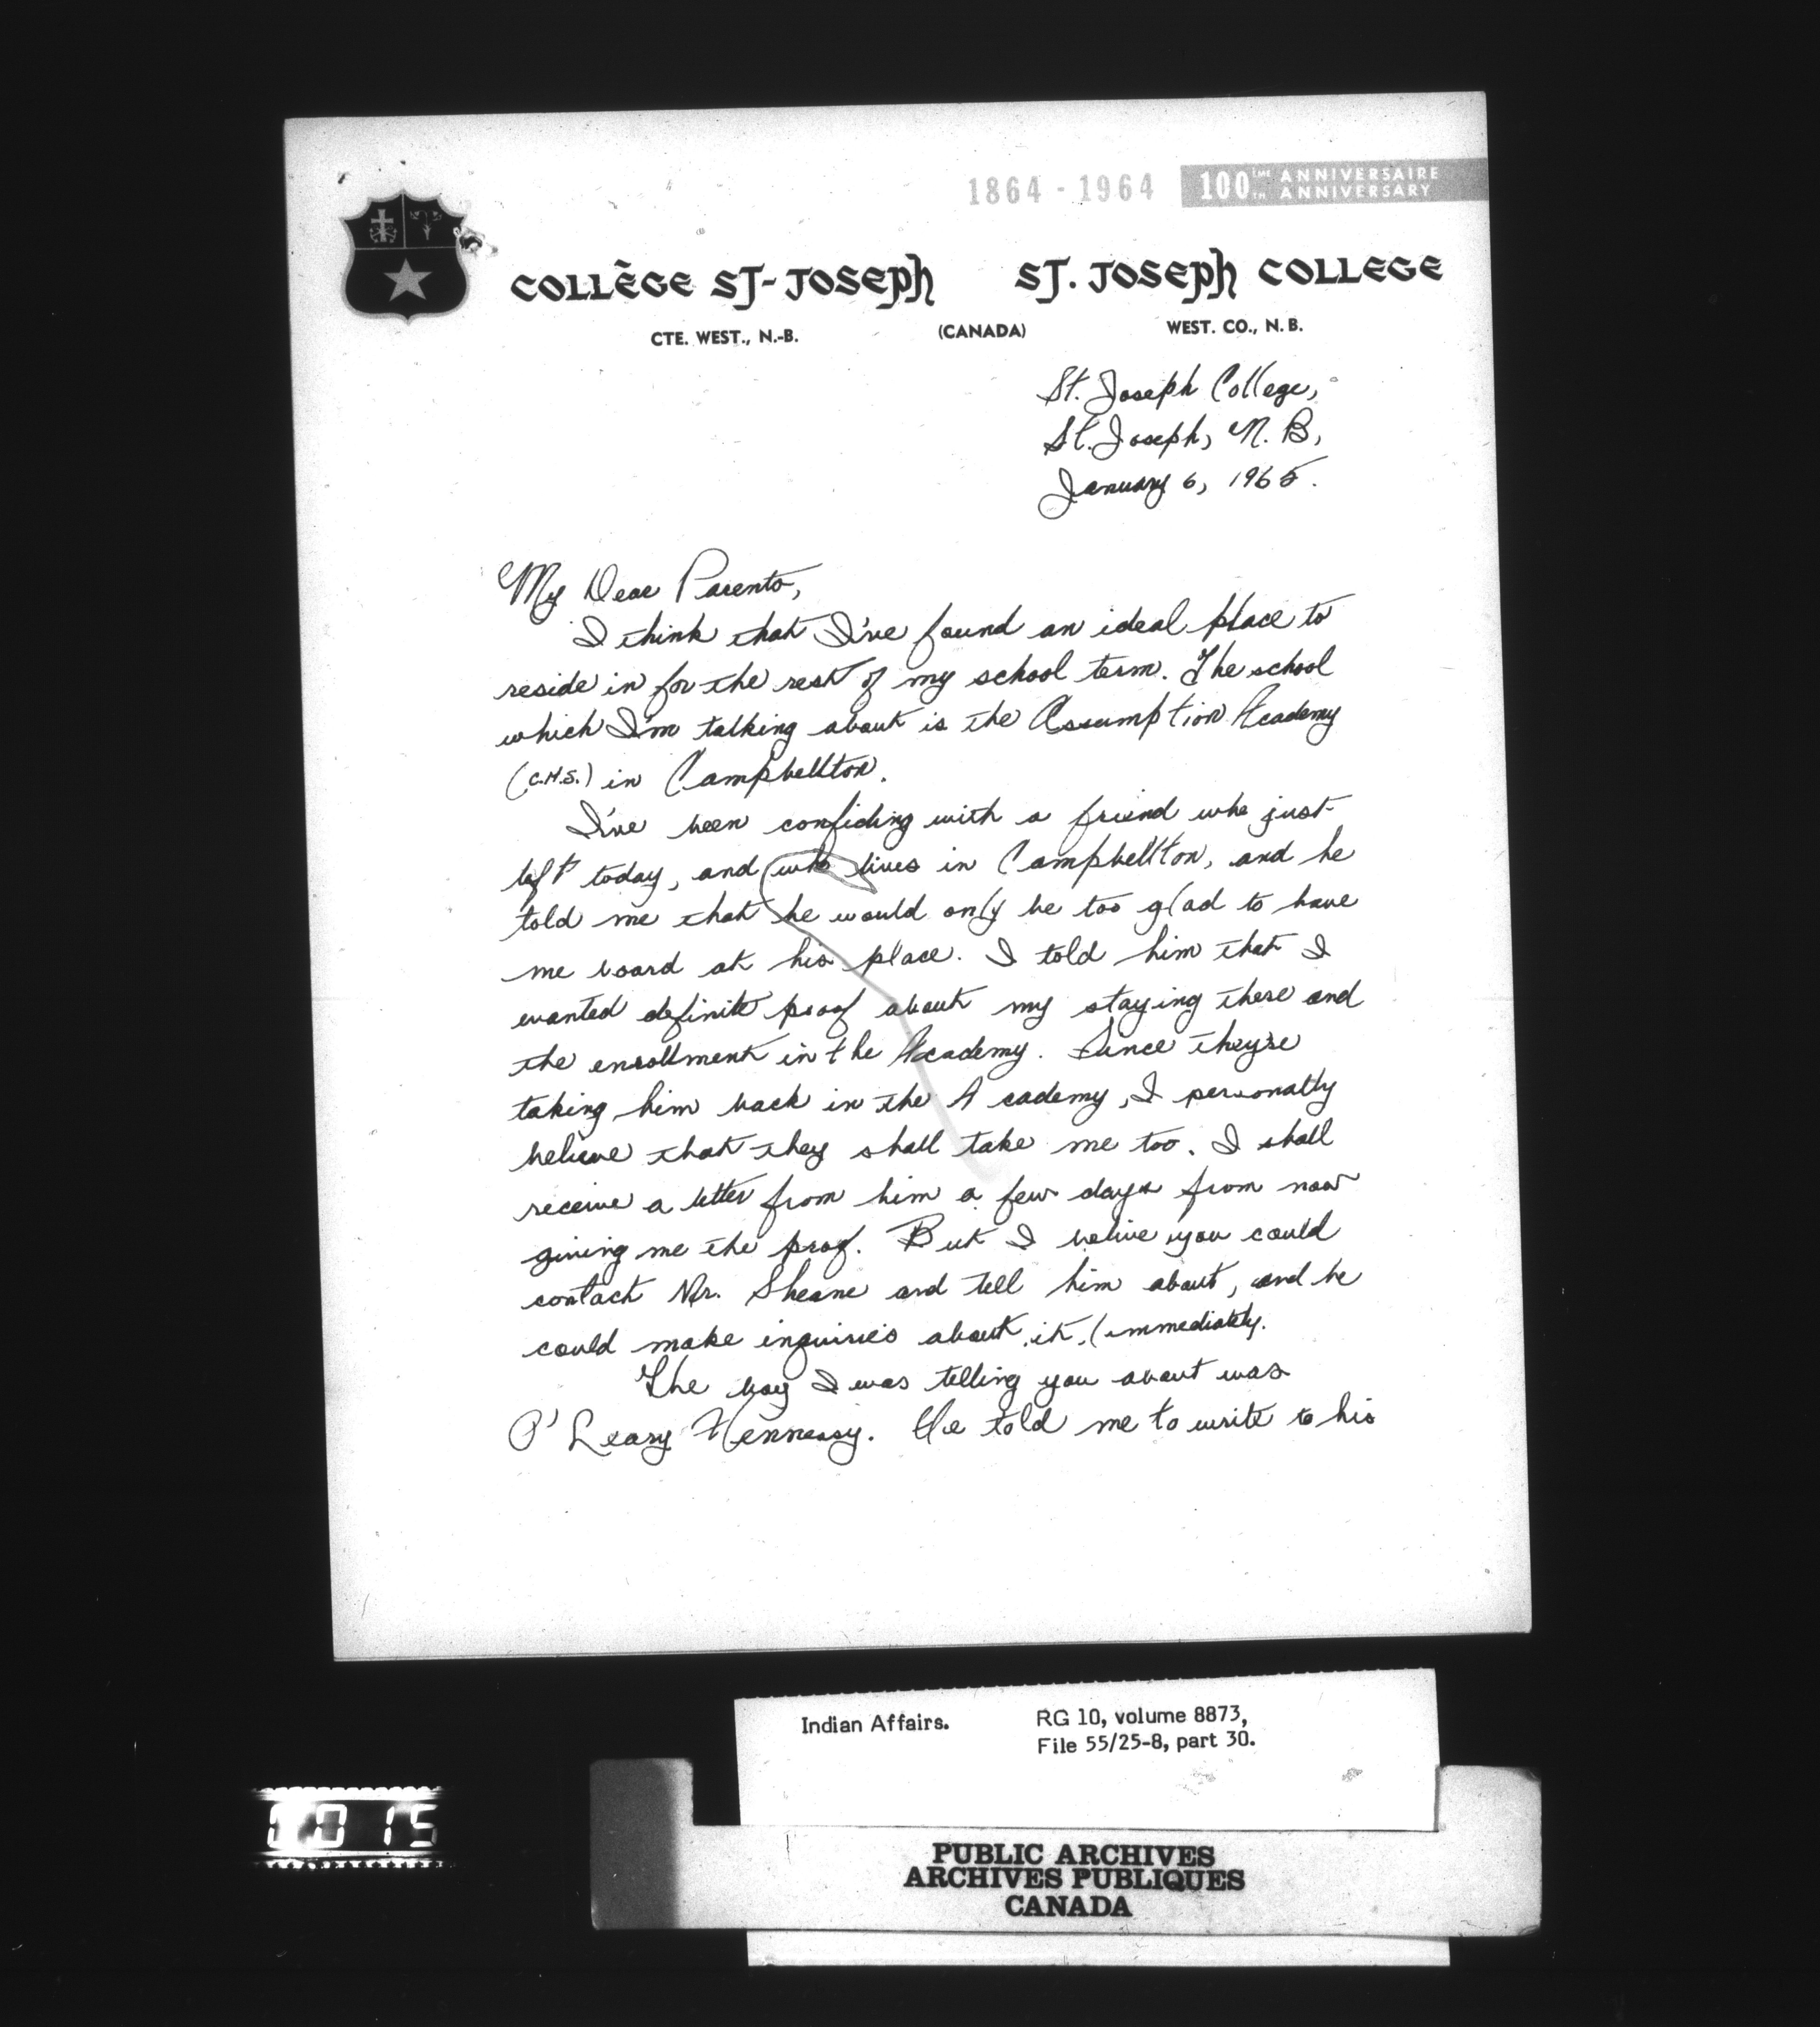 1864 - 1964 100 ME TH ANNIVERSAIRE ANNIVERSARY
COLLÈGE ST-JOSEPH ST. JOSEPH COLLEGE
CTE. WEST., N.-B. (CANADA) WEST. CO., N. B.
St. Joseph College,
St. Joseph, N. B,
January 6, 1965.
My Dear Parents,
I think that I've found an ideal place to
reside in for the rest of my school term. The school
which I'm talking about is the Assumption Academy
(C.H.S.) in Campbellton.
I've been confiding with a friend who just
left today, and who lives in Campbellton, and he
told me that he would only be too glad to have
me board at his place. I told him that I
wanted definite proof about my staying there and
the enrollment in the Academy. Since they're
taking him back in the Academy, I personally
believe that they shall take me too. I shall
receive a letter from him a few days from now
giving me the prof. But I belive you could
contact Mr. Sheane and tell him about, and he
could make inquiries about it, immediately.
The boy I was telling you about was
O'Leary Hennessy. He told me to write to his
Indian Affairs. RG 10, volume 8873,
File 55/25-8, part 30.
0015
PUBLIC ARCHIVES
ARCHIVES PUBLIQUES
CANADA